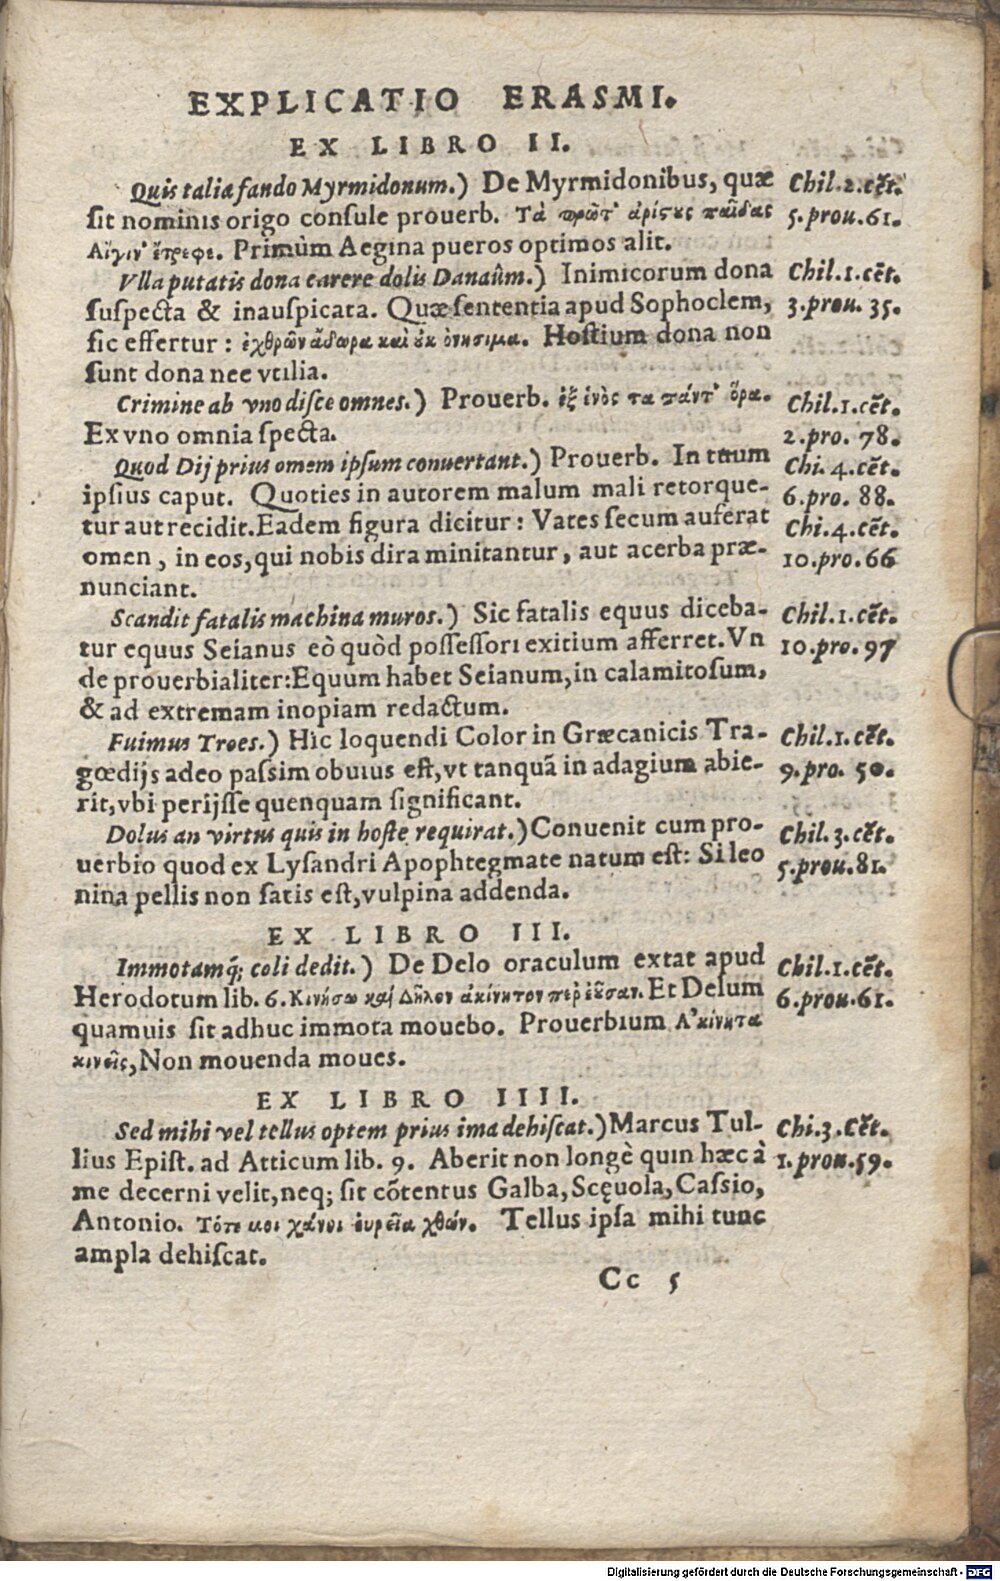 EXPLICATIO ERASMI.
EX LIBRO II.
Quis talia fando Myrmidonum.) De Myrmidonibus, quæ Chil.2.cēt.
sit nominis origo consule prouerb. Τὰ πρῶτ' ἀρίςους παῖδας 5.prou.61.
Αἴγιν' ἔτρεφε. Primùm Aegina pueros optimos alit.
Vlla putatis dona carere dolis Danaûm.) Inimicorum dona Chil.1.cēt.
suspecta & inauspicata. Quæ sententia apud Sophoclem, 3.prou. 35.
sic effertur: ἐχθρῶν ἄδωρα καὶ ουκ ὀνήσιμα. Hostium dona non
sunt dona nec vtilia.
Crimine ab vno disce omnes.) Prouerb. ἐξ ἑνὸς τα πάντ' ὅρα. Chil.1.cēt.
Ex vno omnia specta. 2.pro. 78.
Quod Dij prius omem ipsum conuertant.) Prouerb. In tuum Chi.4.cēt.
ipsius caput. Quoties in autorem malum mali retorque- 6.pro. 88.
tur aut recidit. Eadem figura dicitur: Vates secum auferat Chi.4.cēt.
omen, in eos, qui nobis dira minitantur, aut acerba præ- 10.pro.66
nunciant.
Scandit fatalis machina muros.) Sic fatalis equus diceba- Chil.1.cēt.
tur equus Seianus eò quòd possessori exitium afferret. Vn 10.pro.97
de prouerbialiter: Equum habet Seianum, in calamitosum,
& ad extremam inopiam redactum.
Fuimus Troes.) Hic loquendi Color in Græcanicis Tra- Chil.1.cēt.
gœdijs adeo passim obuius est, vt tanquã in adagium abie- 9.pro. 50.
rit, vbi perijsse quenquam significant.
Dolus an virtus quis in hoste requirat.) Conuenit cum pro- Chil.3.cēt.
uerbio quod ex Lysandri Apophtegmate natum est: Si leo 5.prou.81.
nina pellis non satis est, vulpina addenda.
EX LIBRO III.
Immotamq; coli dedit.) De Delo oraculum extat apud Chil.1.cēt.
Herodotum lib. 6. Κινήσω καὶ Δῆλον ἀκίνητον περ ἐοῦσαν. Et Delum 6.prou.61.
quamuis sit adhuc immota mouebo. Prouerbium Α'κίνητα
κινεῖς, Non mouenda moues.
EX LIBRO IIII.
Sed mihi vel tellus optem prius ima dehiscat.) Marcus Tul- Chi.3.Cēt.
lius Epist. ad Atticum lib. 9. Aberit non longè quin hæc à 1.prou.59.
me decerni velit, neq; sit cōtentus Galba, Scęuola, Cassio,
Antonio. Τότε μοι χάνοι ἐυρεῖα χθών. Tellus ipsa mihi tunc
ampla dehiscat.
Cc 5
Digitalisierung gefördert durch die Deutsche Forschungsgemeinschaft - DFG